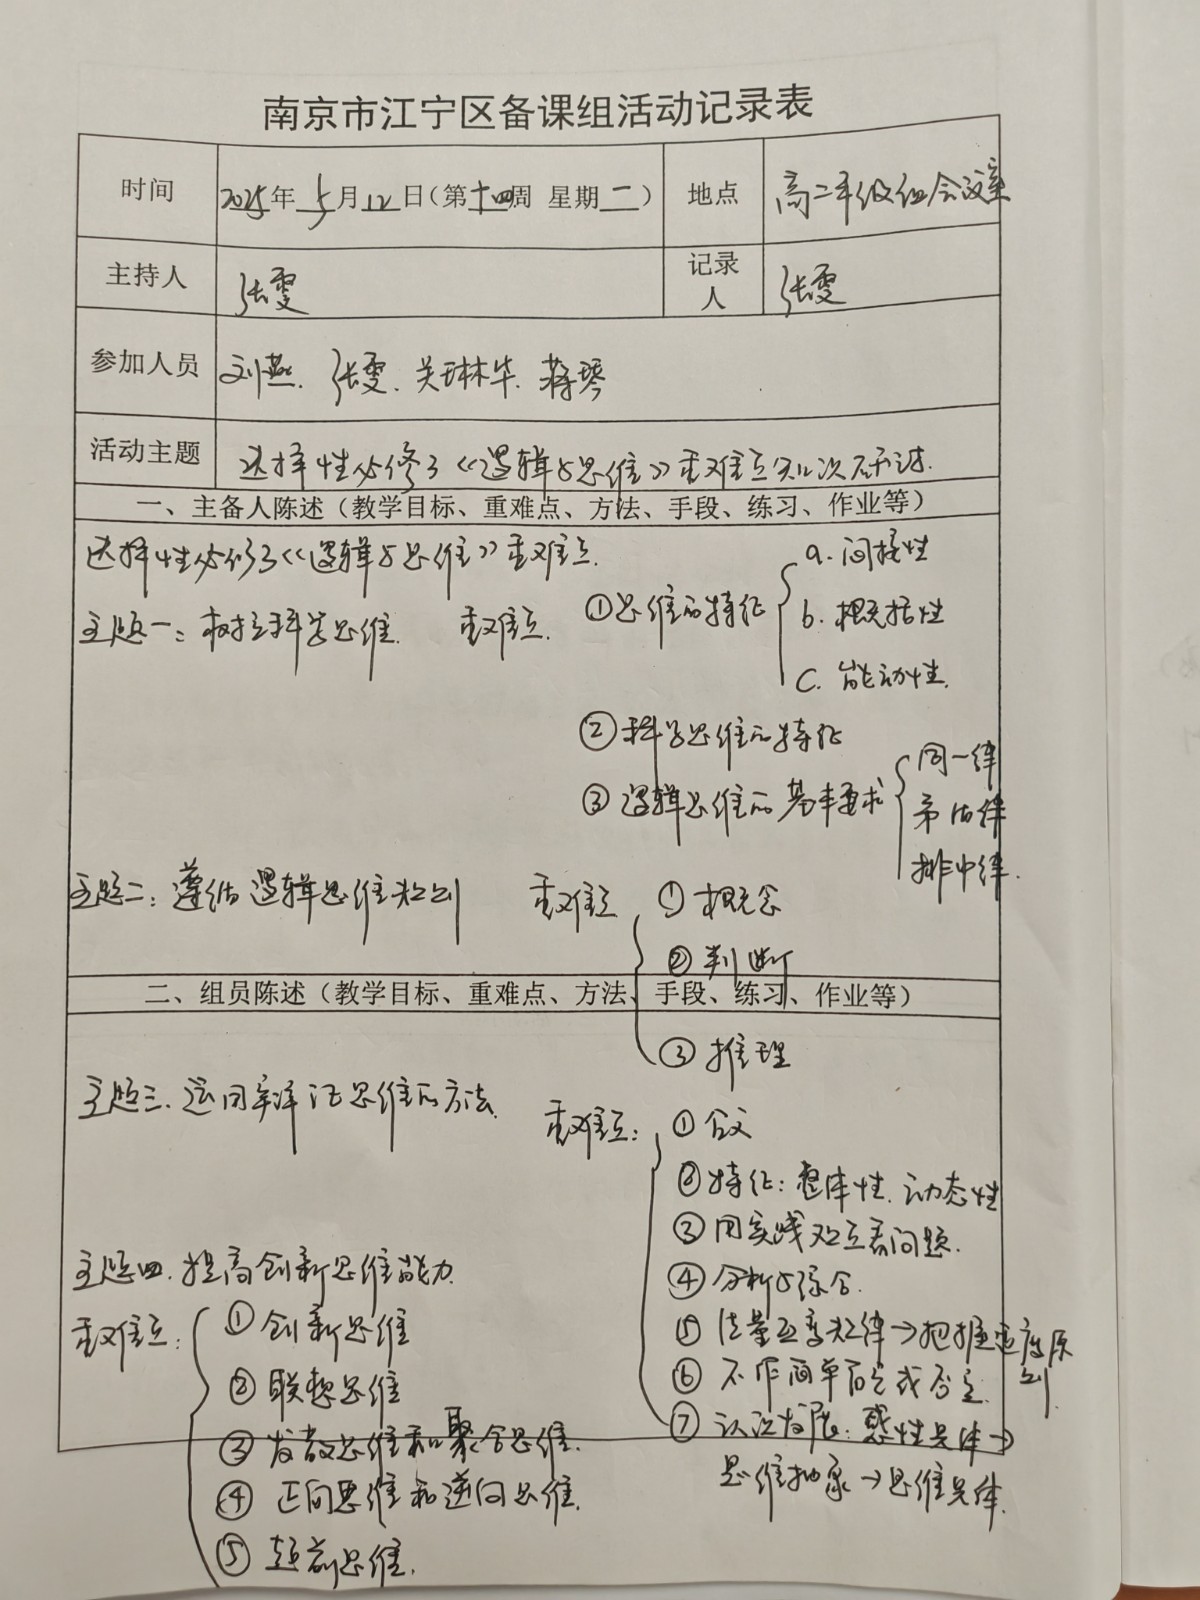 南京市江宁区备课组活动记录表
时间 2025年5月12日(第十四周 星期二) 地点 高二年级组会议室
主持人 张雯 记录人 张雯
参加人员 刘燕、张雯、关琳华、蒋琴
活动主题 选择性必修3《逻辑与思维》重难点知识研讨.
一、主备人陈述（教学目标、重难点、方法、手段、练习、作业等）
选择性必修3《逻辑与思维》重难点.
主题一：树立科学思维. 重难点. ①思维的特征
a. 间接性
b. 概括性
c. 能动性.
②科学思维的特征
③逻辑思维的基本要求
同一律
矛盾律
排中律.
主题二：遵循逻辑思维规则 重难点 ①概念
②判断
二、组员陈述（教学目标、重难点、方法、手段、练习、作业等）
③推理
主题三. 运用辩证思维的方法. 重难点：①含义
②特征：整体性. 动态性
③用实践观点看问题.
④分析与综合.
⑤质量互变规律→把握适度原则
⑥不作简单肯定或否定.
⑦认识发展：感性具体→
思维抽象→思维具体.
主题四. 提高创新思维能力.
重难点：①创新思维
②联想思维
③发散思维和聚合思维.
④正向思维和逆向思维.
⑤超前思维.